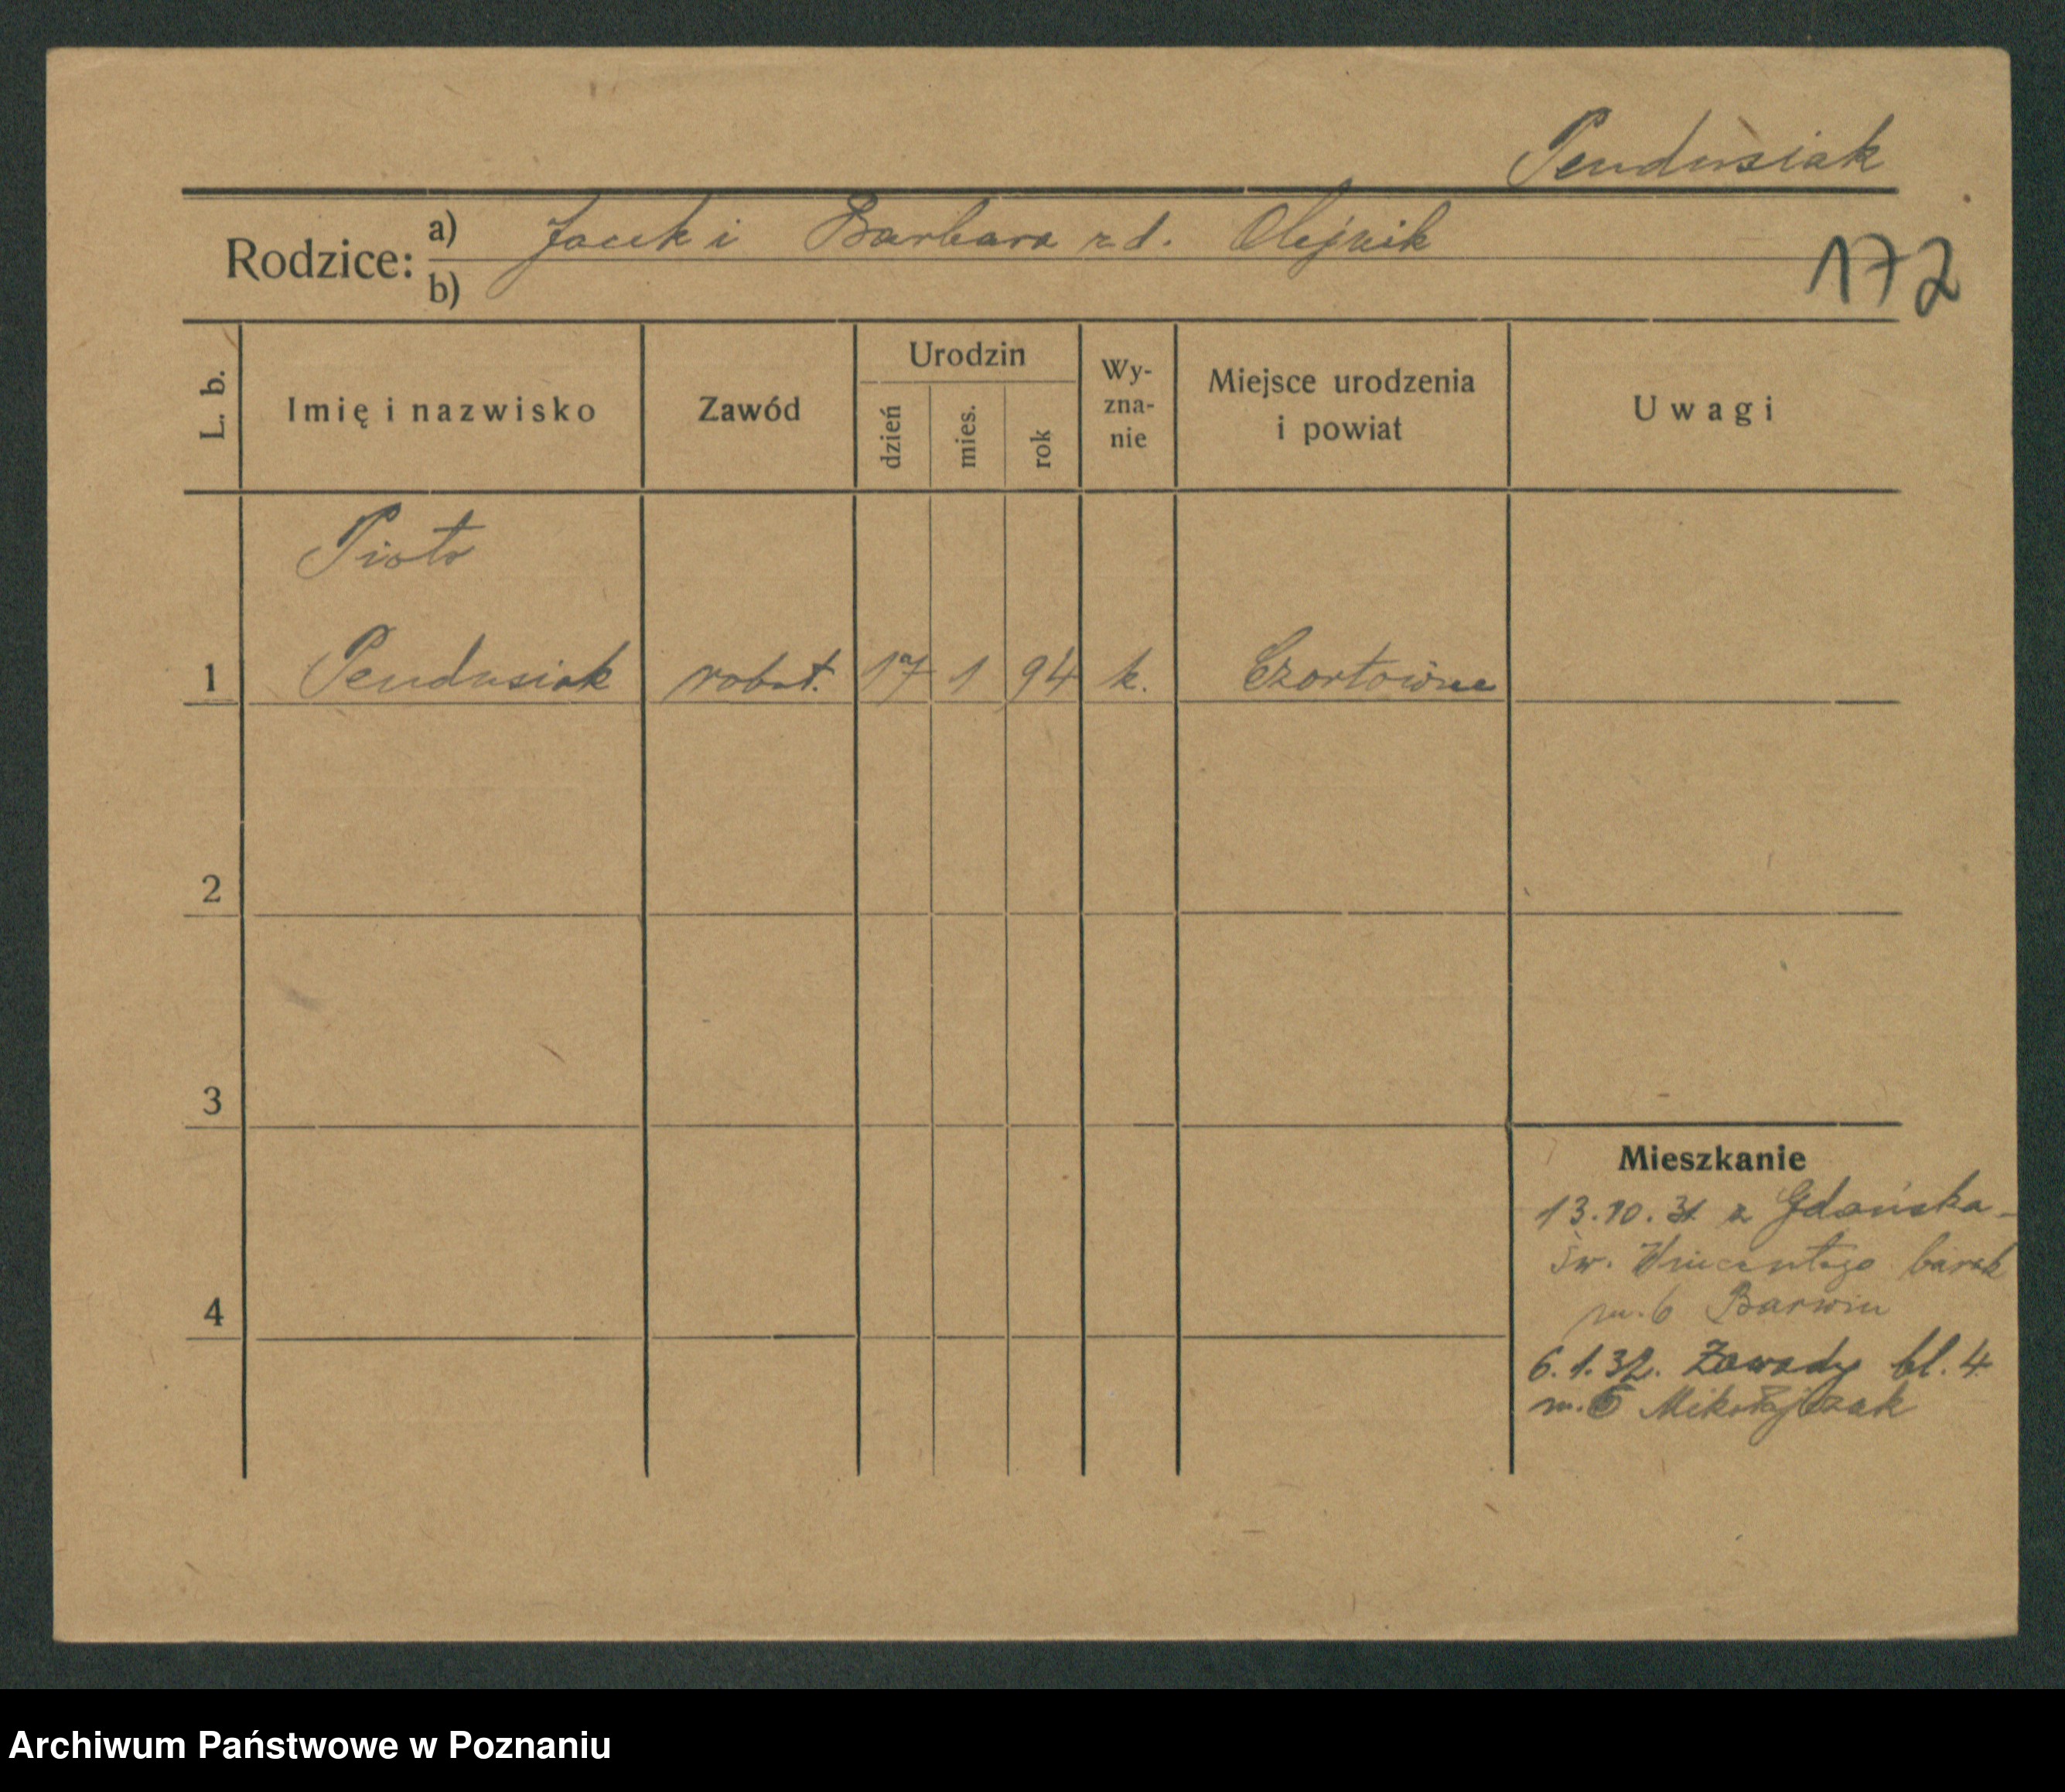 Pendusiak
Rodzice: a) Jacek i Barbara zd. Olejnik
b)
172
L. b. Imię i nazwisko Zawód Urodzin dzień mies. rok Wyznanie Miejsce urodzenia i powiat Uwagi
Piotr
1 Pendusiak robot. 17 1 94 k.
2
3
Mieszkanie
13.10.31 z Gdańska
św. Wincentego barak
m. 6
4
6.1.32. Zawady bl. 4
m. 6 Mikołajczak
Archiwum Państwowe w Poznaniu